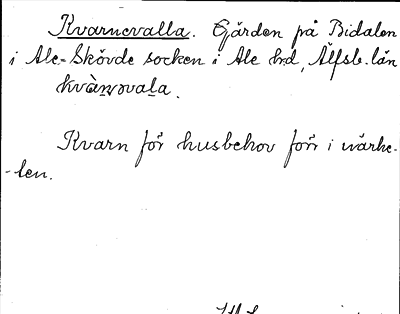 Kvarnevalla. Gården på Bidalen
i Ale-Skövde socken i Ale hrd, Älfsb. län
kvà̱ṉovala̱.
Kvarn för husbehov förr i närhe-
-ten.